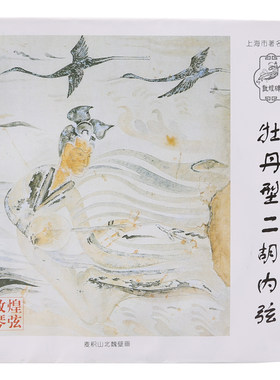 上海市著名
敦煌牌
牡丹型二胡内弦
敦煌
琴弦
麦积山北魏壁画